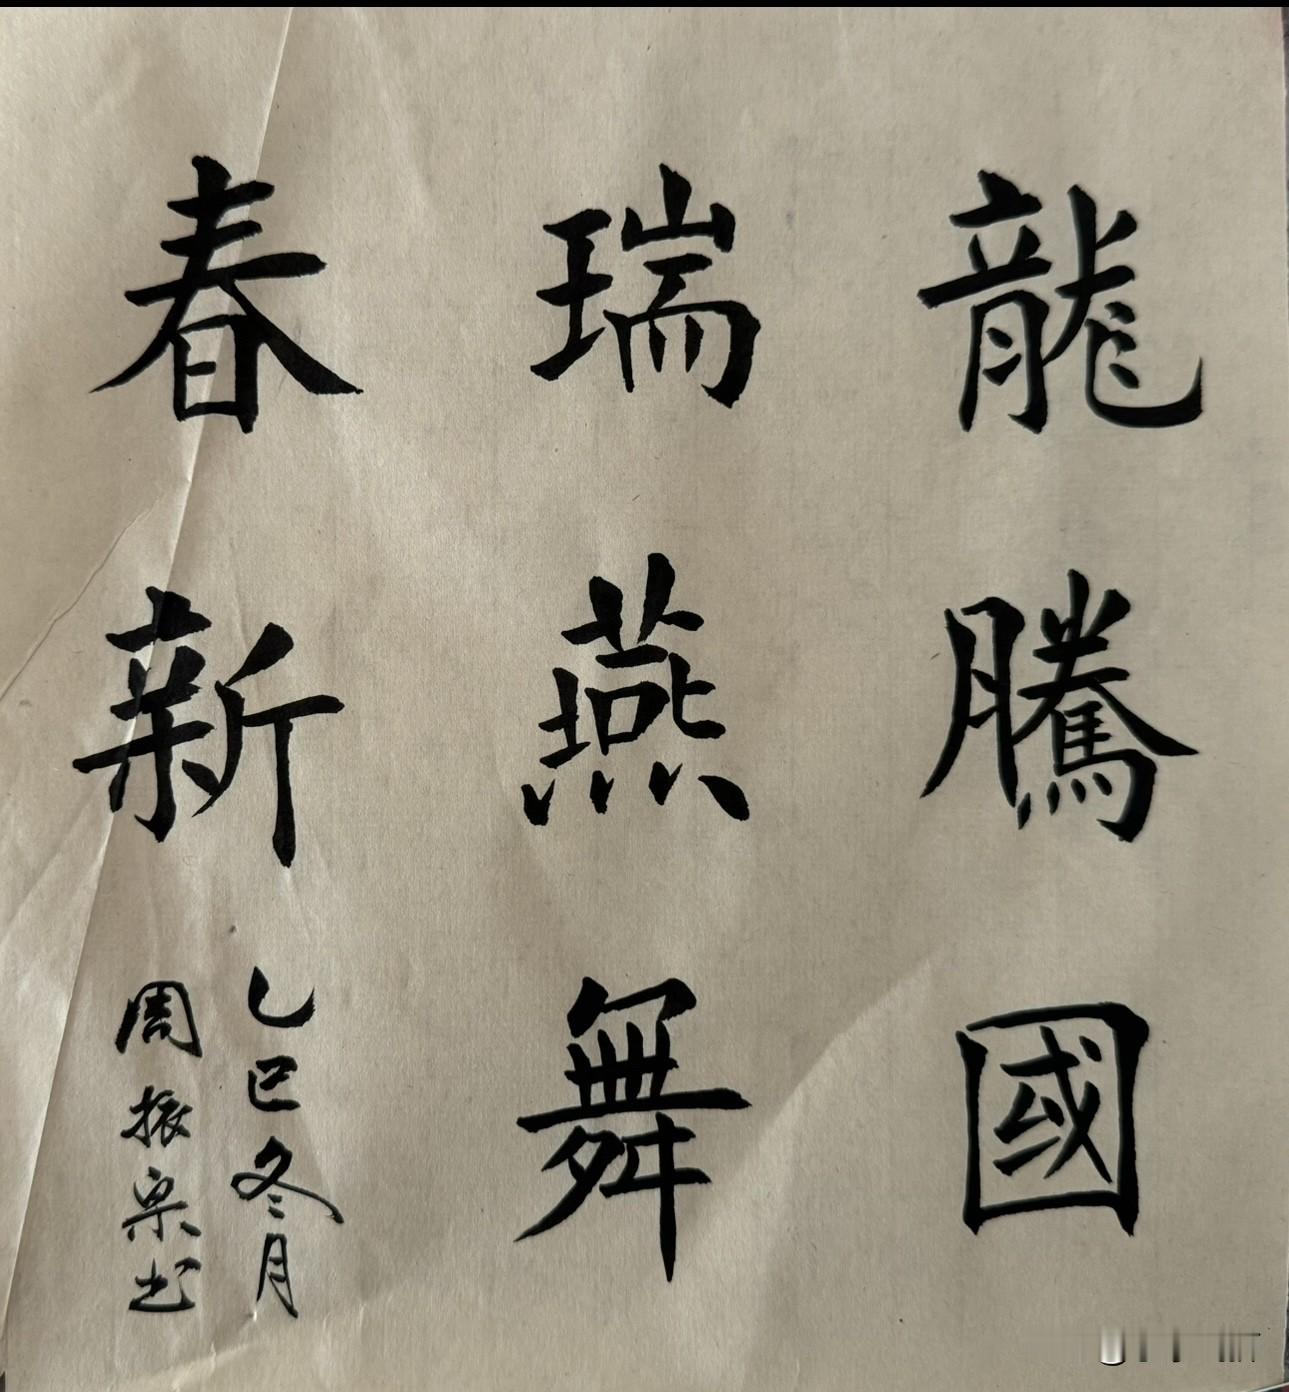 龍騰國
瑞燕舞
春新
乙巳冬月
周振泉书